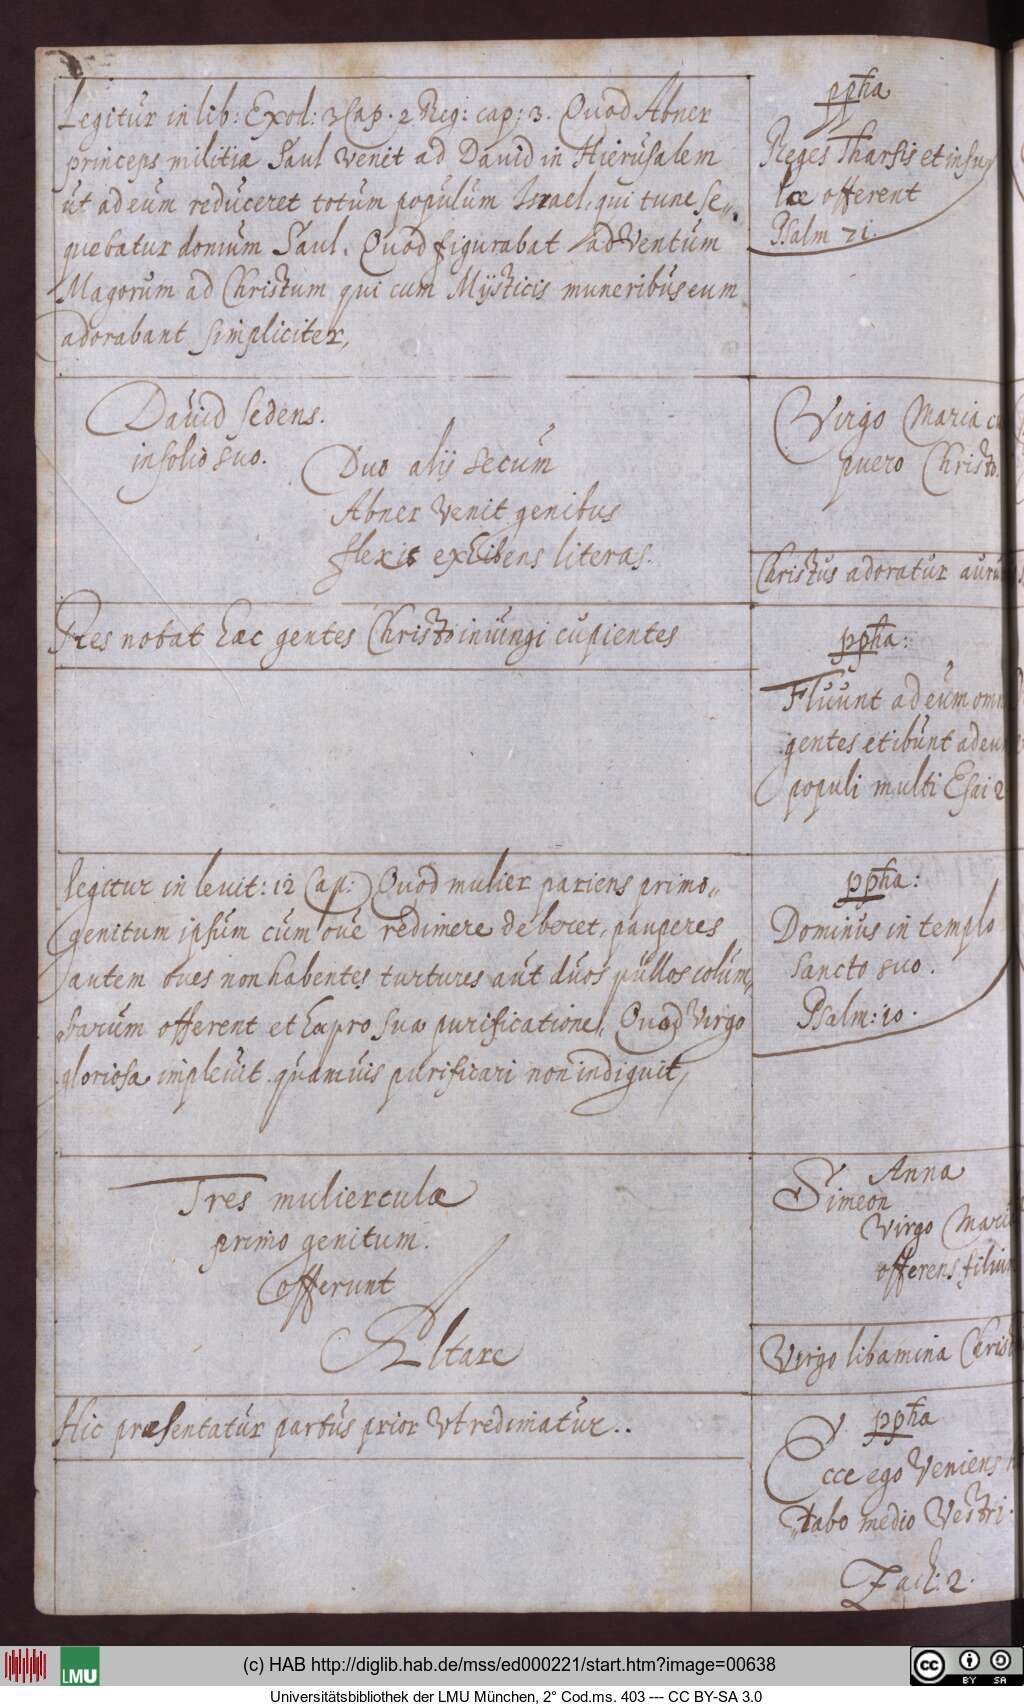 Legitur in lib: Exod: 3 Cap. 2 Reg: cap: 3. Quod Abner
princeps militiæ Saul venit ad David in Hierusalem
ut ad eum reduceret totum populum Israel, qui tunc se„
quebatur domum Saul. Quod figurabat adventum
Magorum ad Christum qui cum Mÿsticis muneribus eum
adorabant simpliciter,
ppħa
Reges Tharsis et insu
læ offerent
Psalm 71.
David sedens.
in solio suo.
Duo alij secum
Abner venit genibus
flexis exhibens literas.
Virgo Maria cu
puero Christo.
Christus adoratur auru
Res notat hæc gentes Christo iniungi cupientes
ppħa:
Fluunt ad eum omn
gentes et ibunt ad eum
populi multi Esai 2
legitur in levit: 12 Cap: Quod mulier pariens primo„
genitum ipsum cum ove redimere deberet, pauperes
autem oves non habentes turtures aut duos pullos colum„
barum offerent et hæ pro sua purificatione, Quod Virgo
gloriosa implevit quamvis purificari non indiguit,
ppħa:
Dominus in templo
sancto suo.
Psalm: 10.
Tres mulierculæ
primo genitum.
offerunt
Altare
Anna
Simeon
Virgo Maria
offerens filium
Virgo libamina Christ
Hic præsentatur partus prior Vt redimatur..
ppħa
Ecce ego Veniens
„tabo medio Vestri.
Zach: 2.
LMU
(c) HAB http://diglib.hab.de/mss/ed000221/start.htm?image=00638
BY SA
Universitätsbibliothek der LMU München, 2° Cod.ms. 403 --- CC BY-SA 3.0